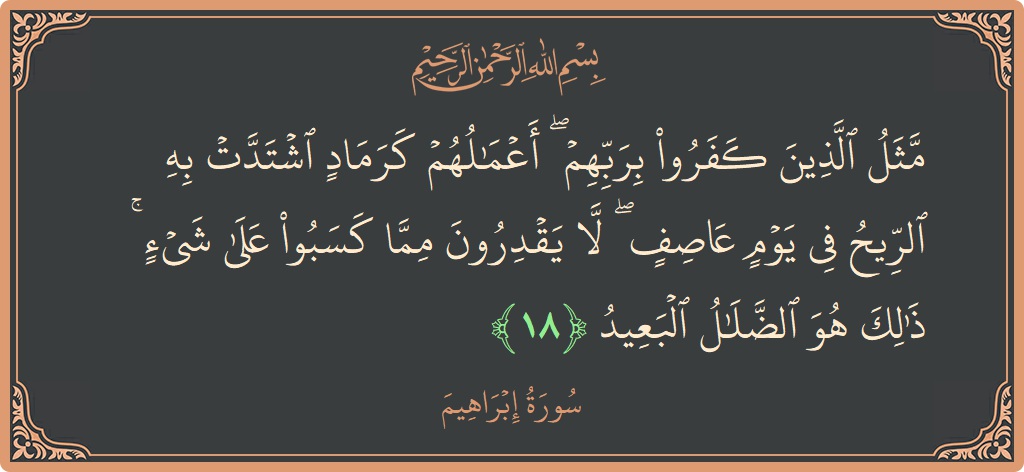 بِسْمِ اللهِ الرَّحْمٰنِ الرَّحِيْمِ
مَّثَلُ ٱلَّذِينَ كَفَرُوا۟ بِرَبِّهِمْ ۖ أَعْمَـٰلُهُمْ كَرَمَادٍ ٱشْتَدَّتْ بِهِ
ٱلرِّيحُ فِى يَوْمٍ عَاصِفٍ ۖ لَّا يَقْدِرُونَ مِمَّا كَسَبُوا۟ عَلَىٰ شَىْءٍ ۚ
ذَٰلِكَ هُوَ ٱلضَّلَـٰلُ ٱلْبَعِيدُ ﴿١٨﴾
سُورَةُ إِبْرَاهِيمَ